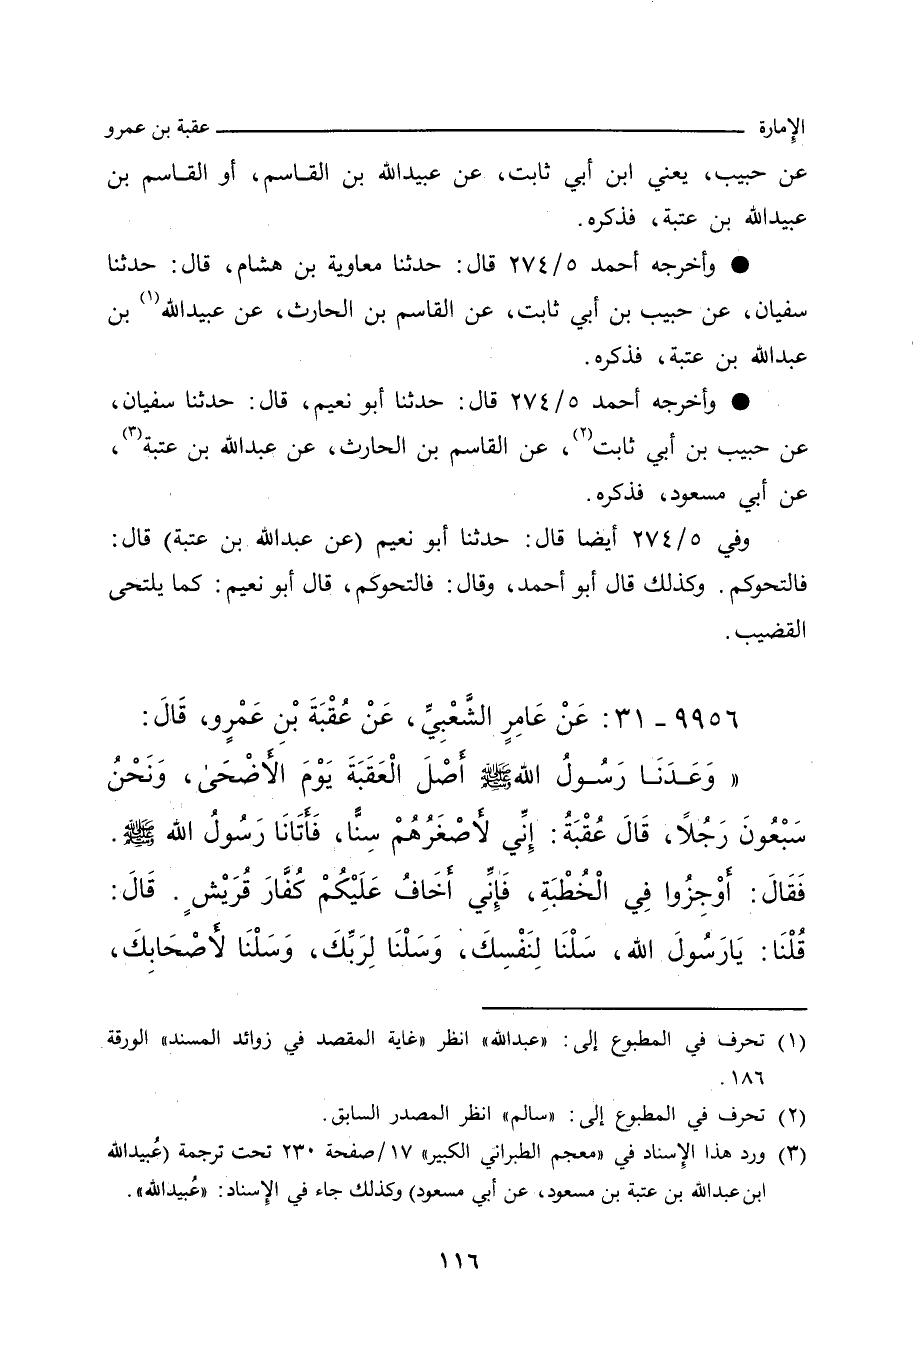 الإمارة ـــــــــــــــــــــــــــــ عقبة بن عمرو
عن حبيب، يعني ابن أبي ثابت، عن عبيدالله بن القـاسم، أو القـاسم بن
عبيدالله بن عتبة، فذكره.
● وأخرجه أحمد ٢٧٤/٥ قال: حدثنا معاوية بن هشام، قال: حدثنا
سفيان، عن حبيب بن أبي ثابت، عن القاسم بن الحارث، عن عبيدالله(١) بن
عبدالله بن عتبة، فذكره.
● وأخرجه أحمد ٢٧٤/٥ قال: حدثنا أبو نعيم، قال: حدثنا سفيان،
عن حبيب بن أبي ثابت(٢)، عن القاسم بن الحارث، عن عبدالله بن عتبة(٣)،
عن أبي مسعود، فذكره.
وفي ٢٧٤/٥ أيضا قال: حدثنا أبو نعيم (عن عبدالله بن عتبة) قال:
فالتحوكم. وكذلك قال أبو أحمد، وقال: فالتحوكم، قال أبو نعيم: كما يلتحى
القضيب.
٩٩٥٦ ـ ٣١: عَنْ عَامِرٍ الشَّعْبِيِّ، عَنْ عُقْبَةَ بْنِ عَمْرٍو، قَالَ:
« وَعَـدَنَـا رَسُـولُ اللهِ ﷺ أَصْلَ الْعَقَبَةَ يَوْمَ الأَضْحَىٰ، وَنَحْنُ
سَبْعُونَ رَجُلًا، قَالَ عُقْبَةُ: إِنِّي لأَصْغَرُهُمْ سِنًّا، فَأَتَانَا رَسُولُ اللهِ ﷺ.
فَقَالَ: أَوْجِزُوا فِي الْخُطْبَةِ، فَإِنِّي أَخَافُ عَلَيْكُمْ كُفَّارَ قُرَيْشٍ. قَالَ:
قُلْنَا: يَارَسُولَ اللهِ، سَلْنَا لِنَفْسِكَ، وَسَلْنَا لِرَبِّكَ، وَسَلْنَا لأَصْحَابِكَ،
(١) تحرف في المطبوع إلى: «عبدالله» انظر «غاية المقصد في زوائد المسند» الورقة
١٨٦.
(٢) تحرف في المطبوع إلى: «سالم» انظر المصدر السابق.
(٣) ورد هذا الإسناد في «معجم الطبراني الكبير» ١٧/صفحة ٢٣٠ تحت ترجمة (عُبيدالله
ابن عبدالله بن عتبة بن مسعود، عن أبي مسعود) وكذلك جاء في الإسناد: «عُبيدالله».
١١٦